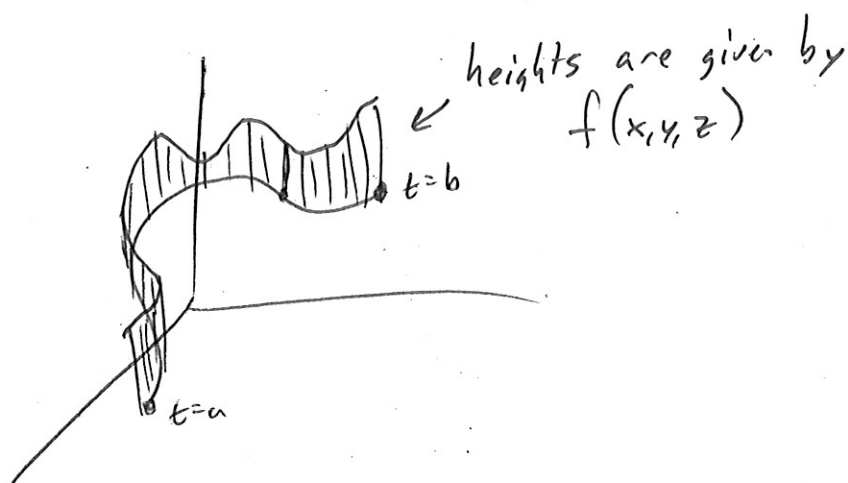 heights are given by
f(x,y,z)
t=b
t=a